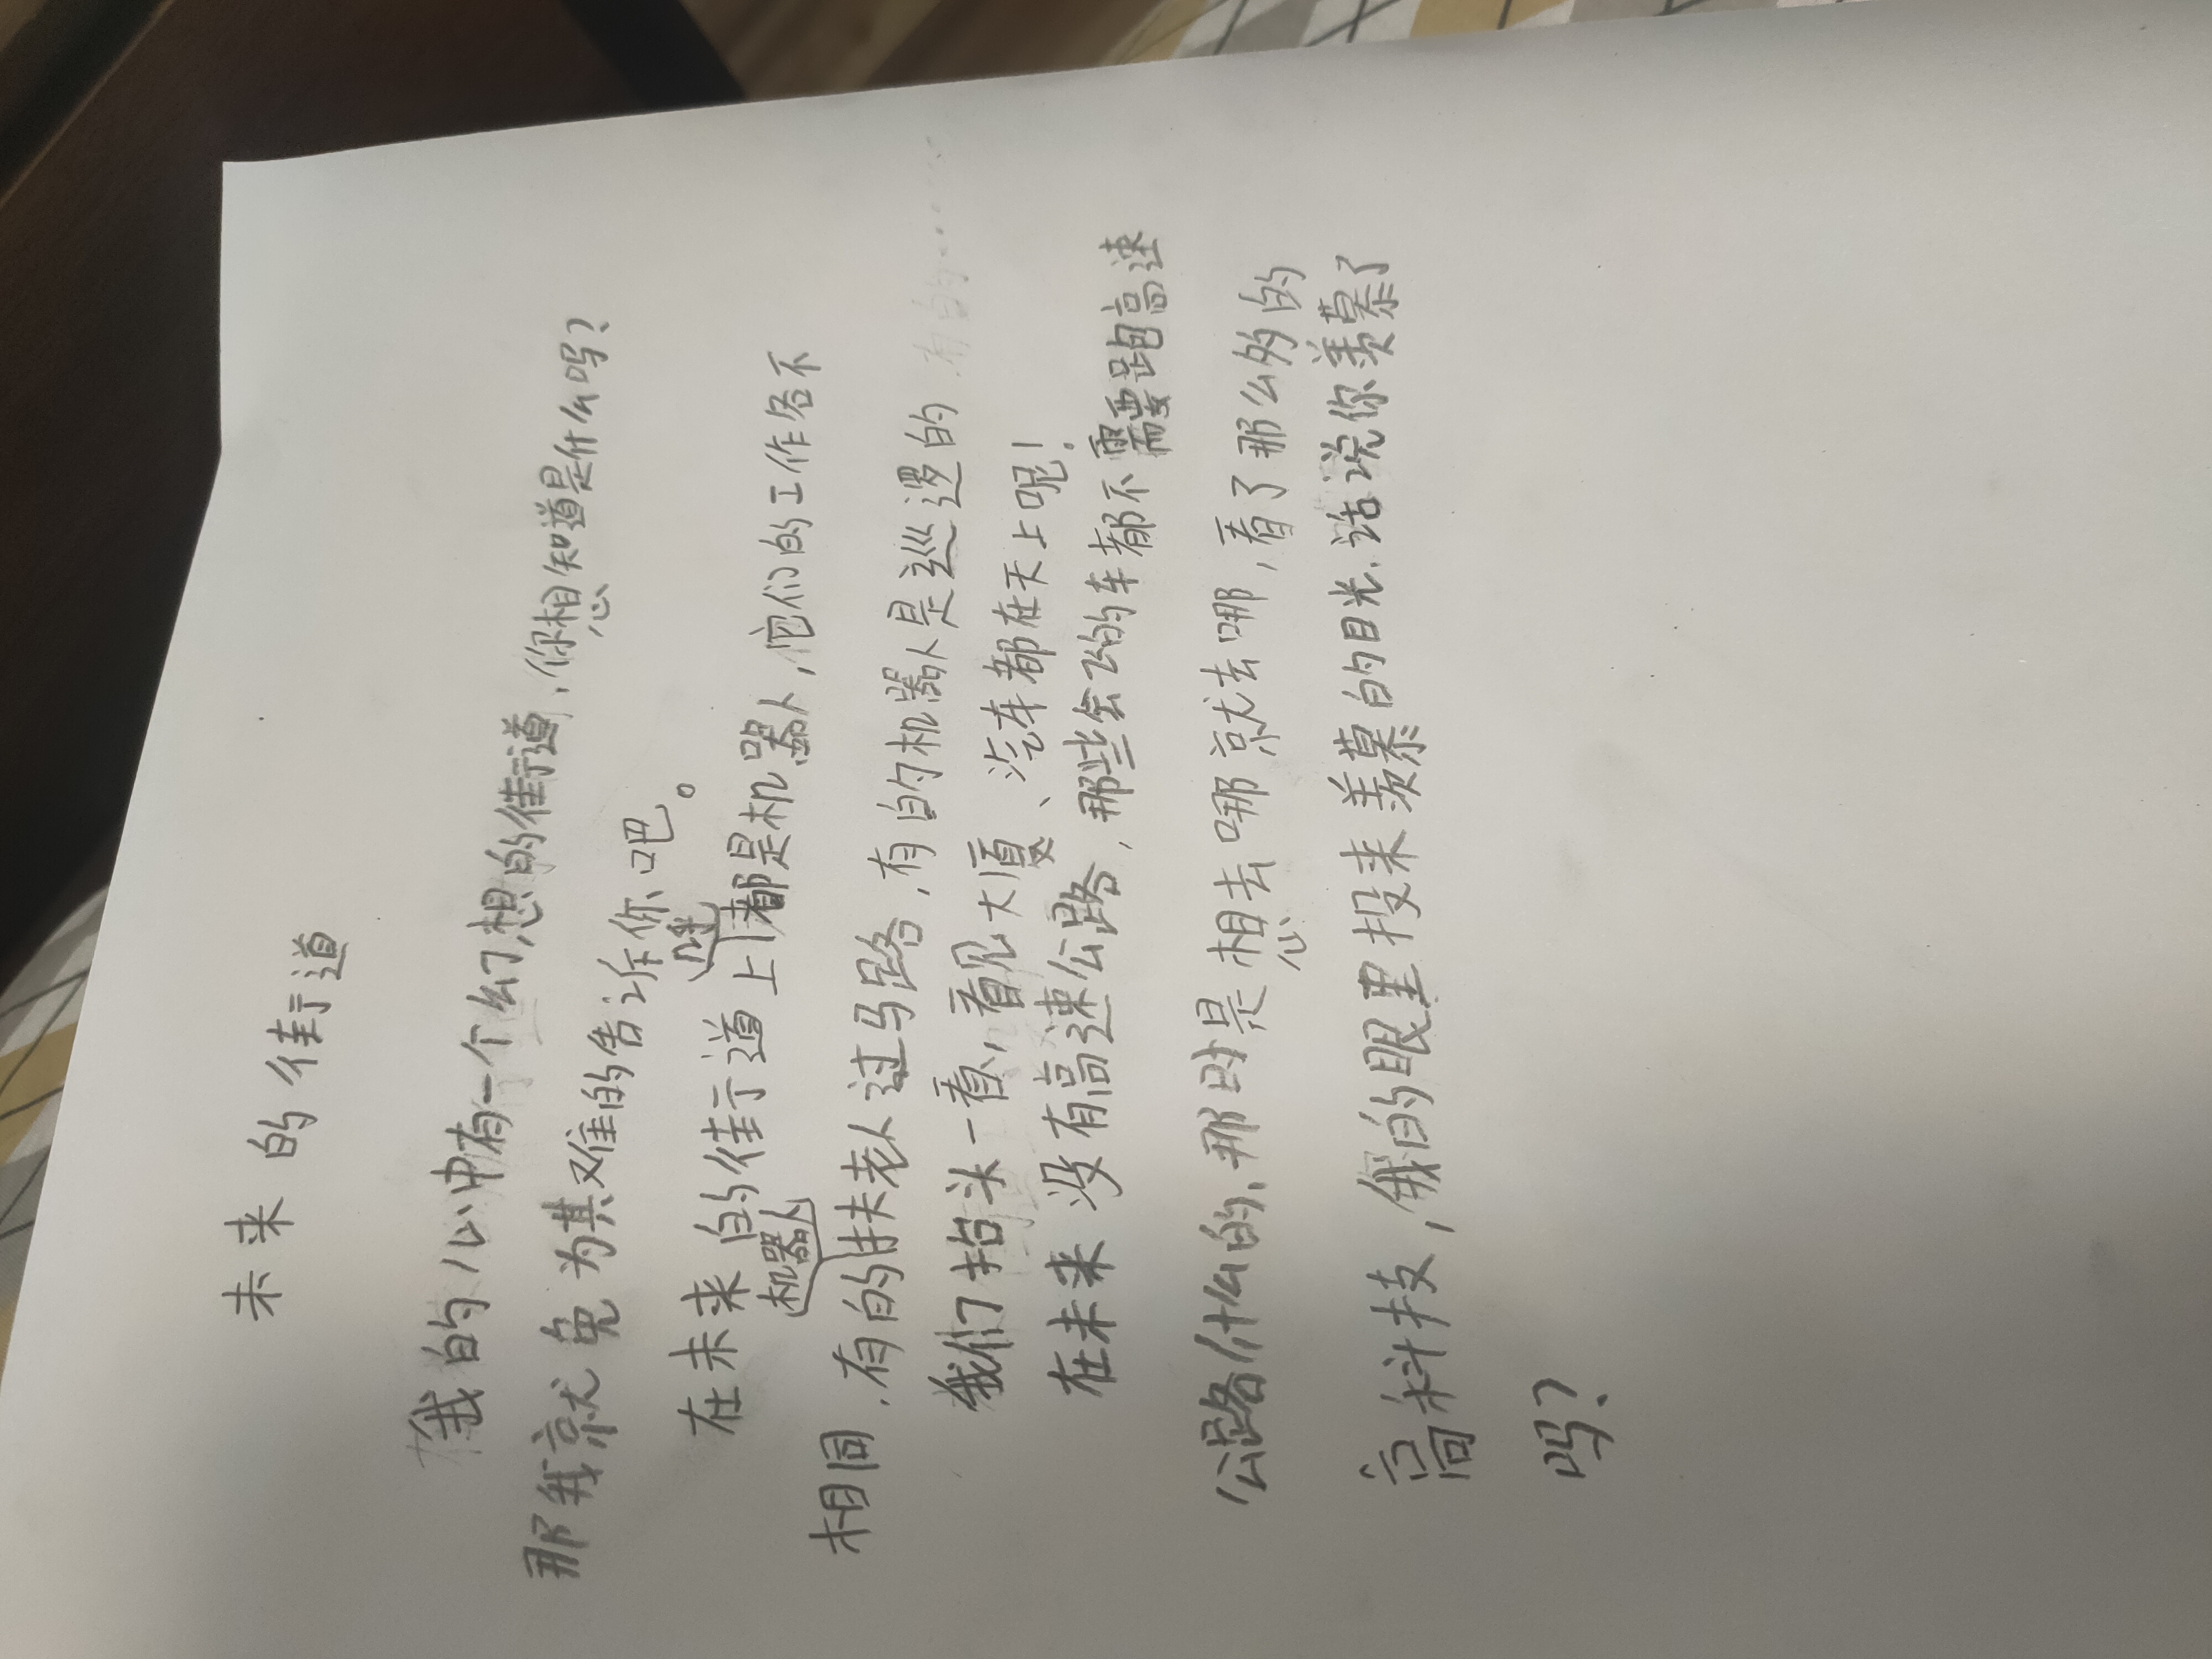 未来的街道
我的心中有一个幻想的街道,你想知道是什么吗?
那我就免为其难的告诉你吧。
在未来的街道上几乎都是机器人,它们的工作各不
相同,有的机器人扶老人过马路,有的机器人是巡逻的 有的……
我们抬头一看,看见大厦、汽车都在天上呢!
在未来没有高速公路,那些会飞的车都不需要跑高速
公路什么的、那时是想去哪就去哪,看了那么多的
高科技,我的眼里投来羡慕的目光、话说你羡慕了
吗?